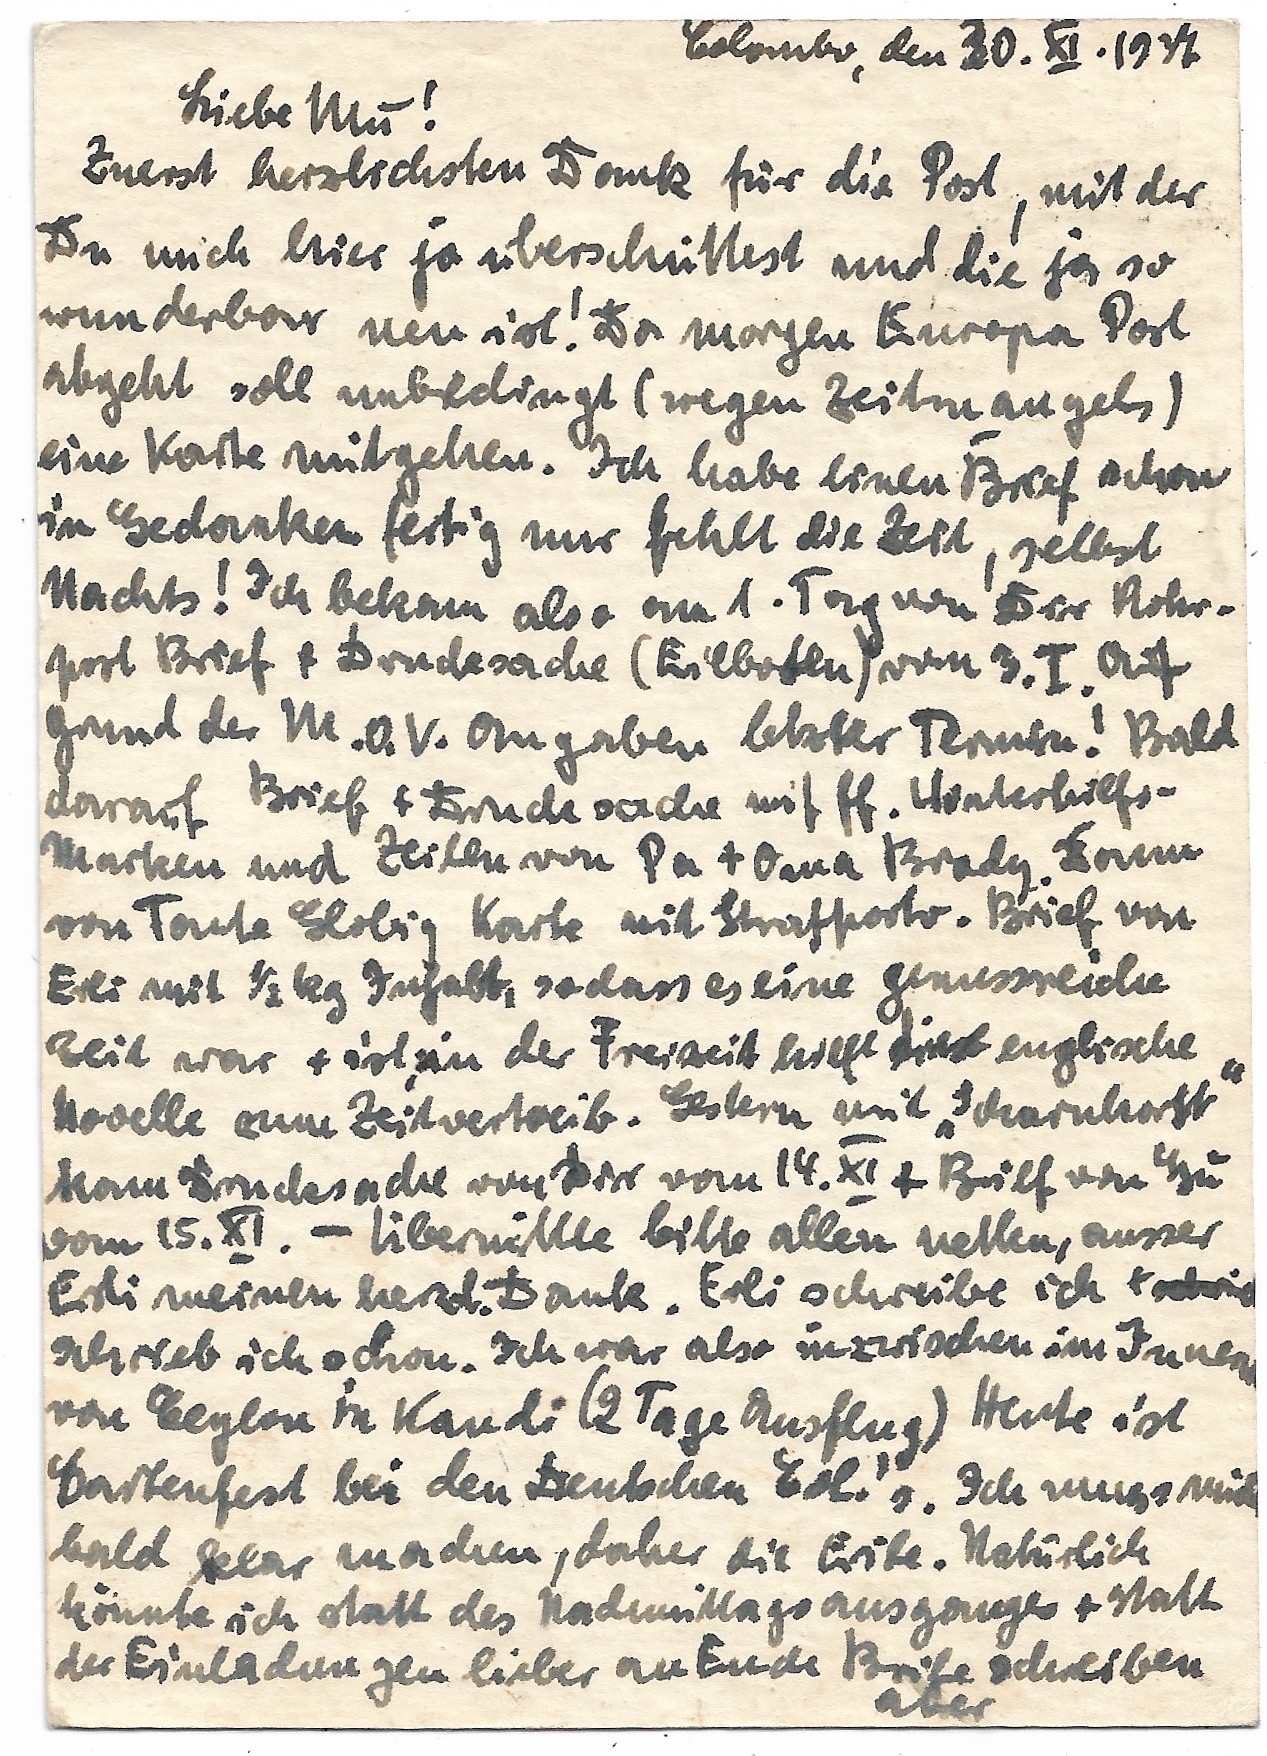 Colombo, den 30. XI. 1937
Liebe Mū!
Zuerst herzlichsten Dank für die Post, mit der
Du mich hier ja überschüttest und die ja so
wunderbar neu ist! Da morgen Europa Post
abgeht soll unbedingt (wegen Zeitmangels)
eine Karte mitgehen. Ich habe einen Brief schon
in Gedanken fertig nur fehlt die Zeit, selbst
Nachts! Ich bekam also am 1. Tag von Dir Rohr-
post Brief + Drucksache (Eilboten) vom 3. I. Auf
grund der M.O.V. Angaben letzter Termin! Bald
darauf Brief + Drucksache mit ff. Winterhilfs-
Marken und Zeilen von Pa + Oma Brady. Dann
von Tante Globig Karte mit Strafporto. Brief von
Erli mit ½ kg Inhalt, sodass es eine genussreiche
Zeit war + ist, in der Freizeit hielt englische
Novelle zum Zeitvertreib. Gestern mit „Scharnhorst"
kam Drucksache von Dir vom 14. XI + Brief von
vom 15. XI. – Übermittle bitte allen netten, ausser
Erli meinen herzl. Dank. Erli schreibe ich +
schrieb ich schon. Ich war also inzwischen im Innern
von Ceylon in Kandi (2 Tage Ausflug) Heute ist
Gartenfest bei den Deutschen Col.'s. Ich muss mich
bald klar machen, daher die Eile. Natürlich
könnte ich statt des Nachmittagsausganges + statt
der Einladungen lieber an Euch Briefe schreiben
aber